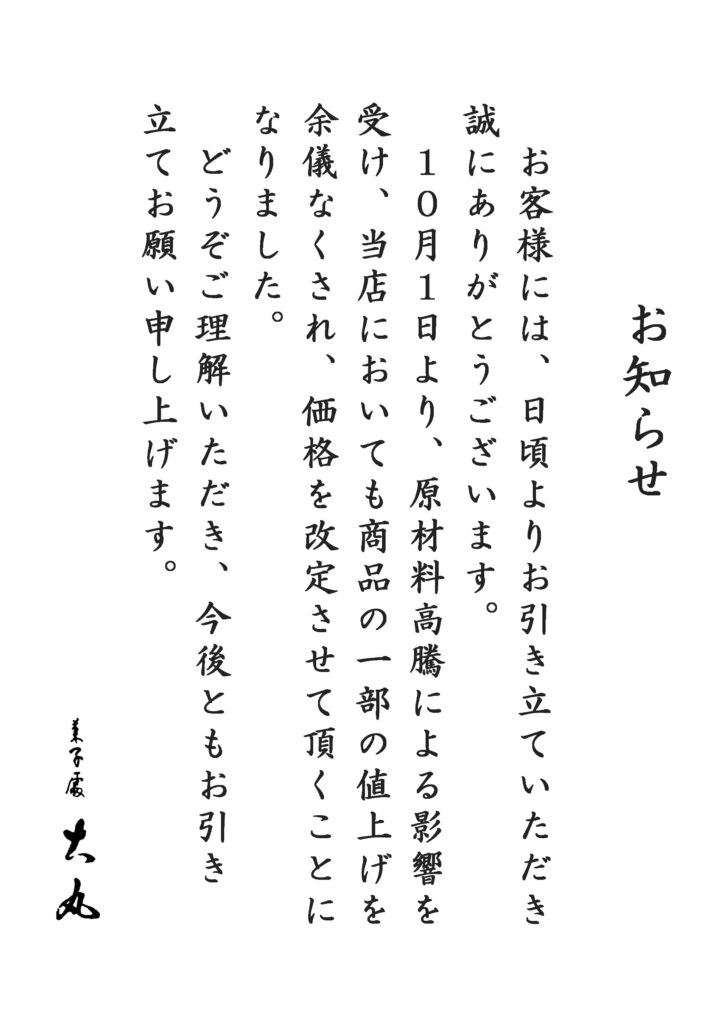 お知らせ
お客様には、日頃よりお引き立ていただき
誠にありがとうございます。
１０月１日より、原材料高騰による影響を
受け、当店においても商品の一部の値上げを
余儀なくされ、価格を改定させて頂くことに
なりました。
どうぞご理解いただき、今後ともお引き
立てお願い申し上げます。
菓子處
大丸